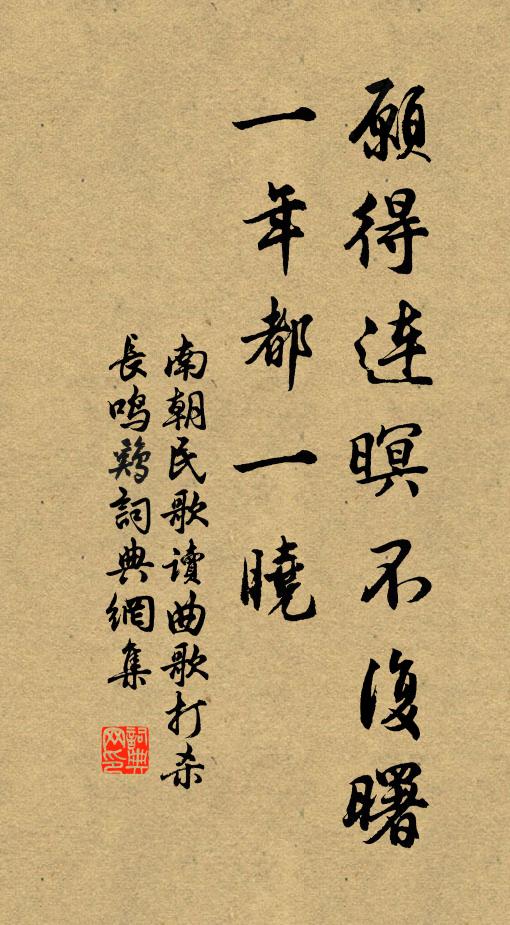 願得連暝不復曙
一年都一曉
南朝民歌读曲歌打杀
長鳴鷄詞典網集
詞典网印